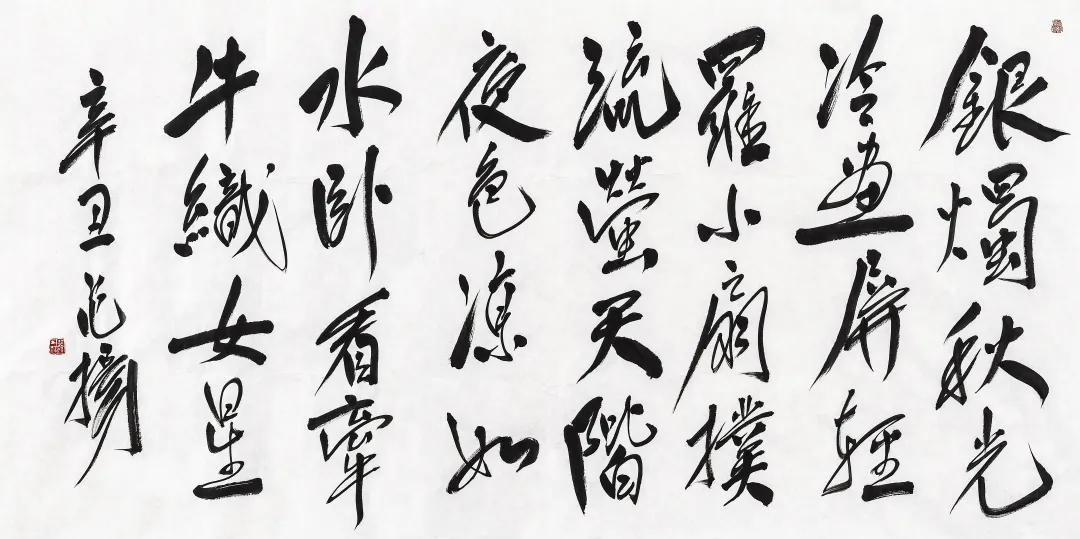 銀燭秋光
冷畫屏輕
羅小扇撲
流螢天階
夜色涼如
水卧看牽
牛織女星
辛丑